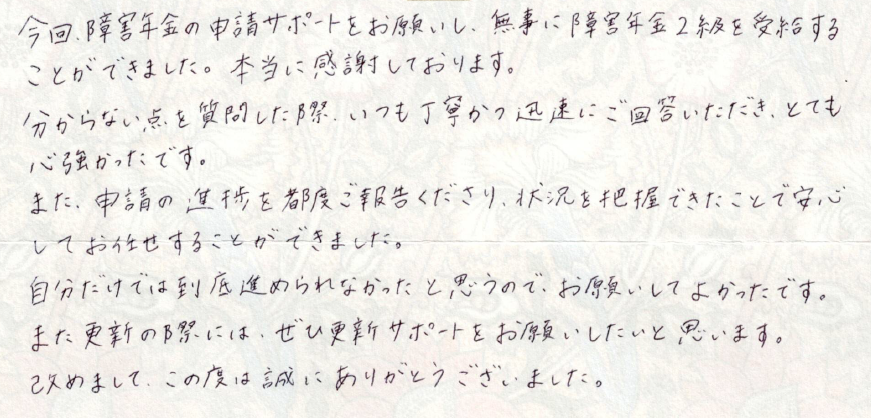 今回、障害年金の申請サポートをお願いし、無事に障害年金2級を受給する
ことができました。本当に感謝しております。
分からない点を質問した際、いつも丁寧かつ迅速にご回答いただき、とても
心強かったです。
また、申請の進捗を都度ご報告くださり、状況を把握できたことで安心
してお任せすることができました。
自分だけでは到底進められなかったと思うので、お願いしてよかったです。
また更新の際には、ぜひ更新サポートをお願いしたいと思います。
改めまして、この度は誠にありがとうございました。